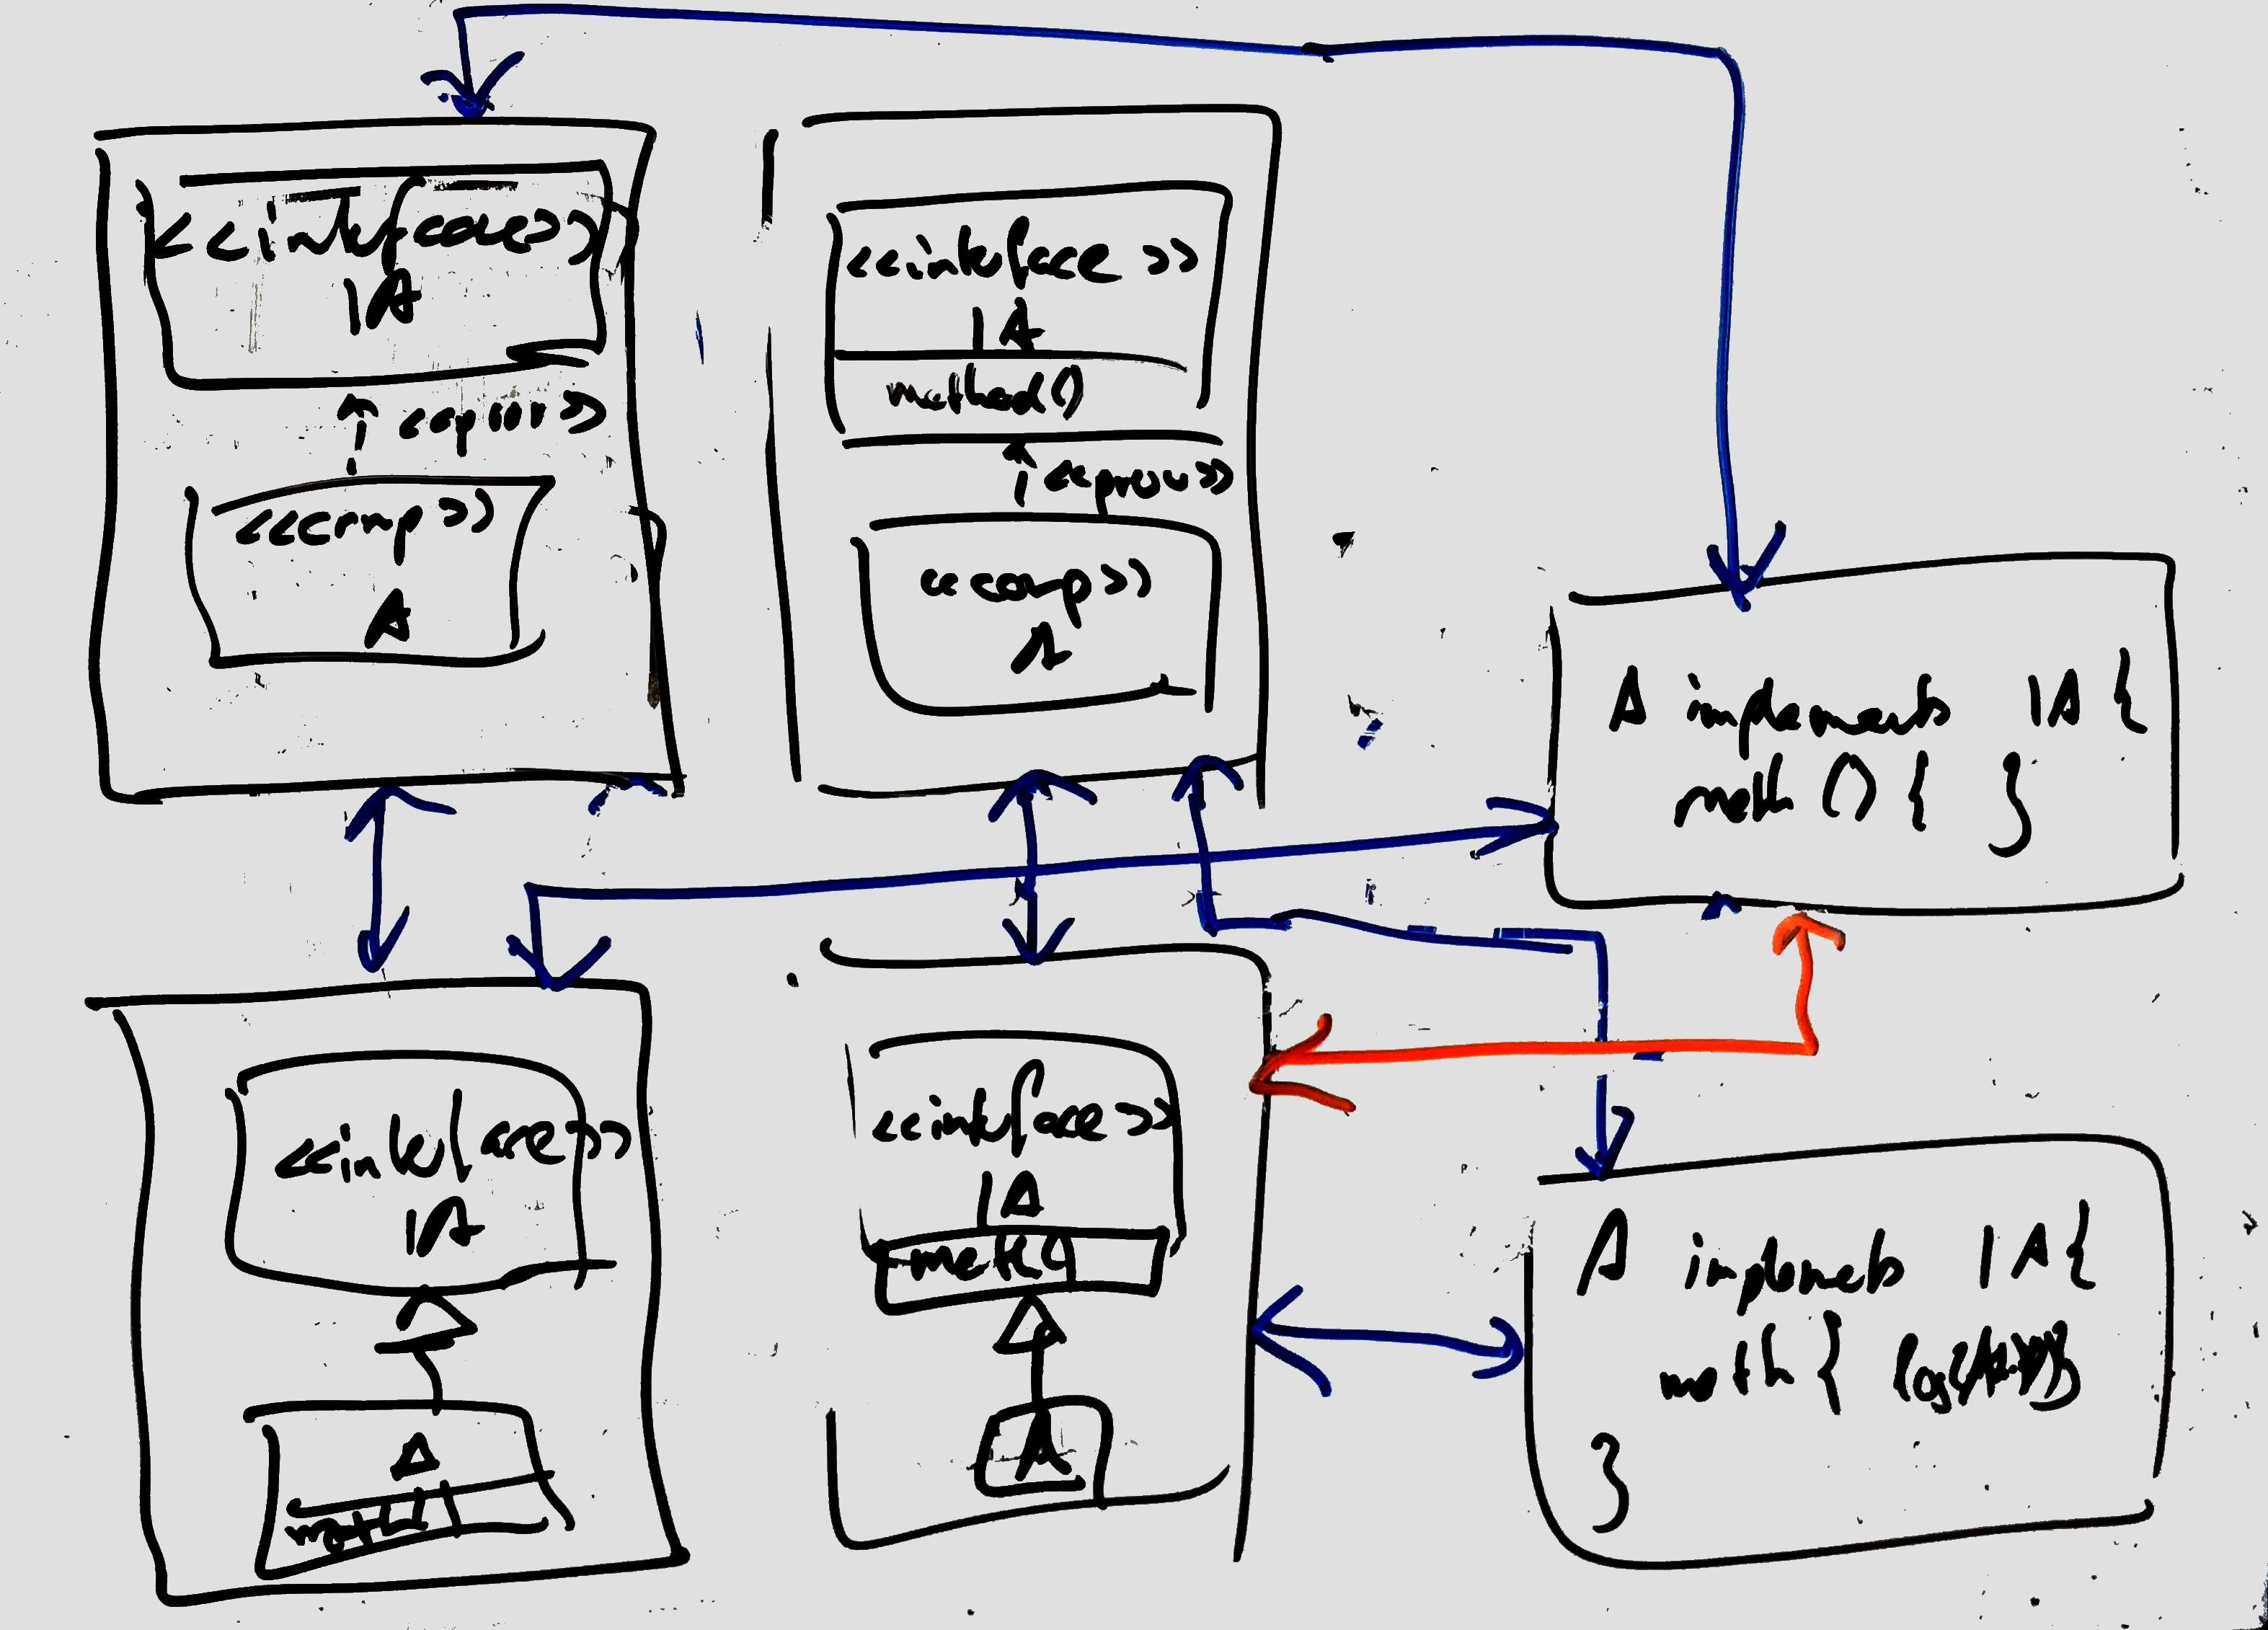 <<interface>>
IA
<<comp>>
A
<<interface>>
IA
method()
<<prov>>
<<comp>>
A
A implements IA {
meth () { }
<<interface>>
IA
A
meth()
<<interface>>
IA
meth()
A
A implements IA {
meth {
}